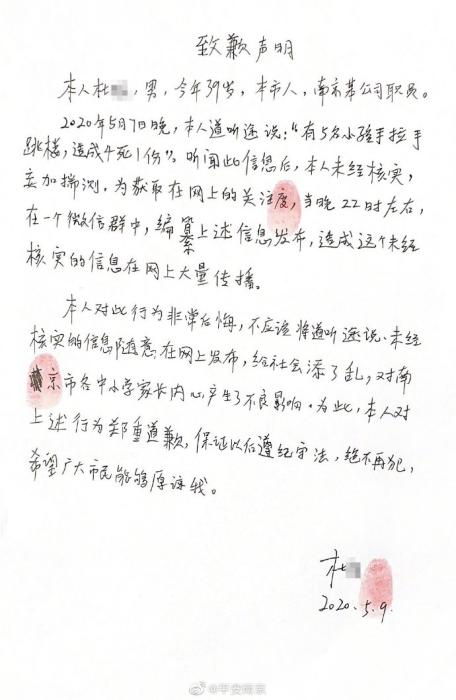 致歉声明
本人杜，男，今年39岁，本市人，南京某公司职员。
2020年5月7日晚，本人道听途说："有5名小孩手拉手
跳楼，造成4死1份"。听闻此信息后，本人未经核实，
妄加揣测，为获取在网上的关注度，当晚22时左右，
在一个微信群中，编纂上述信息发布，造成这个未经
核实的信息在网上大量传播。
本人对此行为非常后悔，不应该将道听途说、未经
核实的信息随意在网上发布，给社会添了乱，对南
京市各中小学家长内心产生了不良影响。为此，本人对
上述行为郑重道歉，保证以后遵纪守法，绝不再犯，
希望广大市民能够原谅我。
杜
2020.5.9.
@平安南京